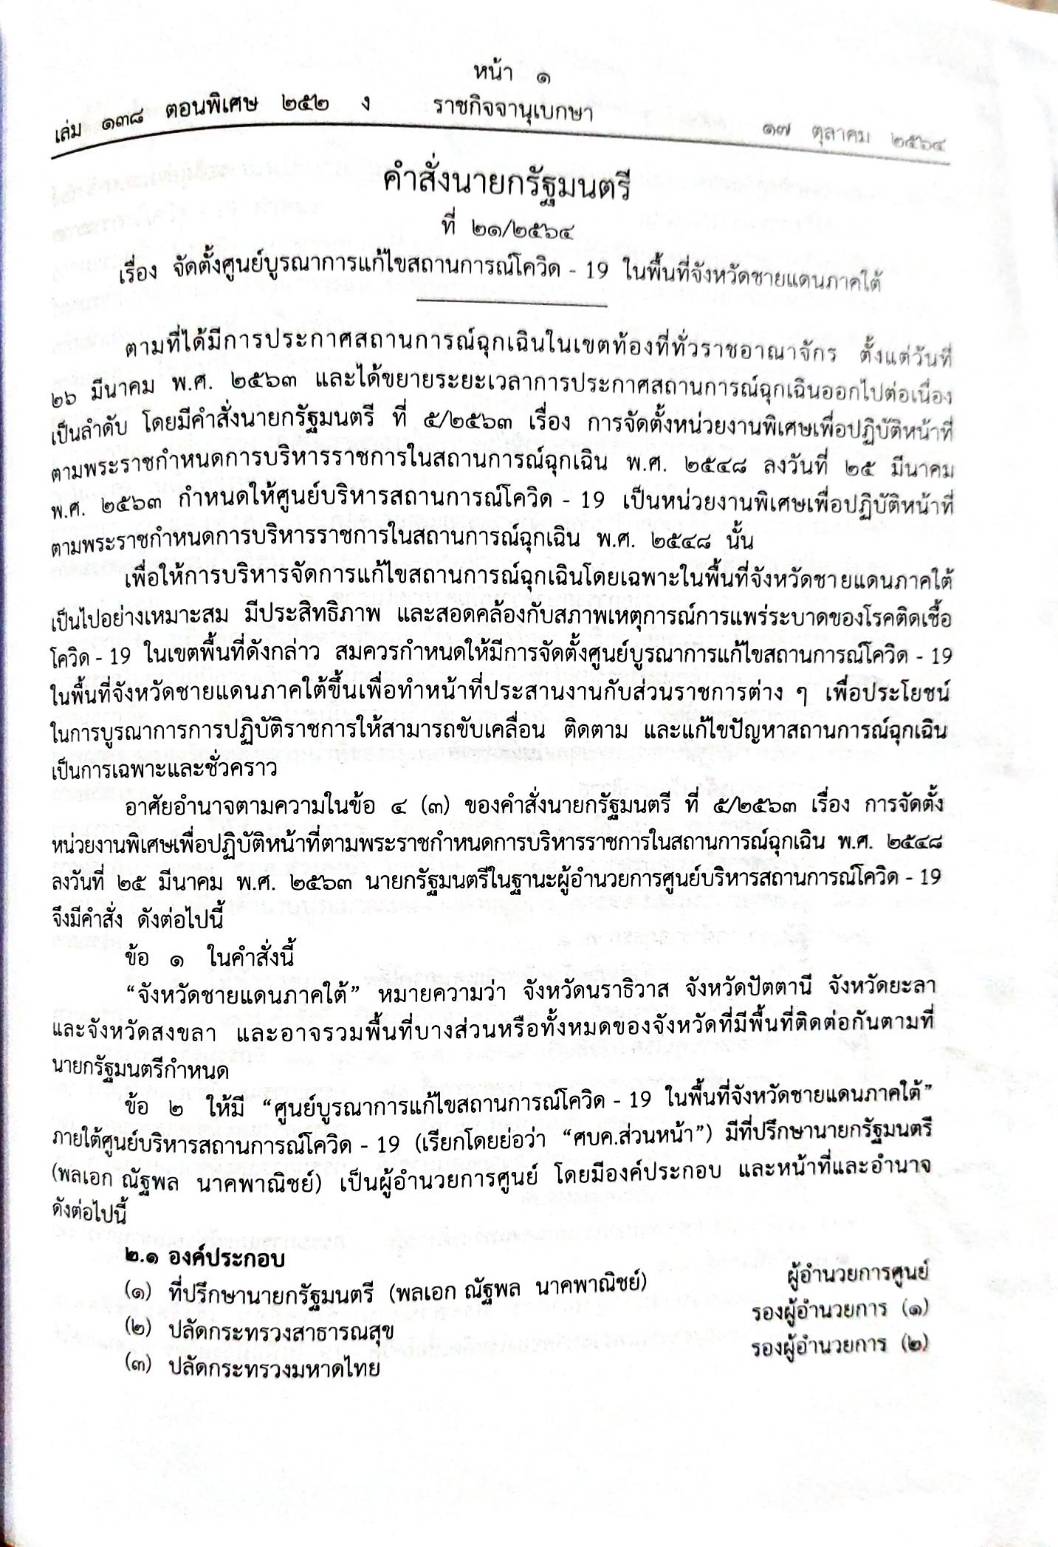 หน้า ๑
เล่ม ๑๓๘ ตอนพิเศษ ๒๕๒ ง ราชกิจจานุเบกษา ๑๗ ตุลาคม ๒๕๖๔
คำสั่งนายกรัฐมนตรี
ที่ ๒๑/๒๕๖๔
เรื่อง จัดตั้งศูนย์บูรณาการแก้ไขสถานการณ์โควิด - 19 ในพื้นที่จังหวัดชายแดนภาคใต้
ตามที่ได้มีการประกาศสถานการณ์ฉุกเฉินในเขตท้องที่ทั่วราชอาณาจักร ตั้งแต่วันที่
๒๖ มีนาคม พ.ศ. ๒๕๖๓ และได้ขยายระยะเวลาการประกาศสถานการณ์ฉุกเฉินออกไปต่อเนื่อง
เป็นลำดับ โดยมีคำสั่งนายกรัฐมนตรี ที่ ๕/๒๕๖๓ เรื่อง การจัดตั้งหน่วยงานพิเศษเพื่อปฏิบัติหน้าที่
ตามพระราชกำหนดการบริหารราชการในสถานการณ์ฉุกเฉิน พ.ศ. ๒๕๔๘ ลงวันที่ ๒๕ มีนาคม
พ.ศ. ๒๕๖๓ กำหนดให้ศูนย์บริหารสถานการณ์โควิด - 19 เป็นหน่วยงานพิเศษเพื่อปฏิบัติหน้าที่
ตามพระราชกำหนดการบริหารราชการในสถานการณ์ฉุกเฉิน พ.ศ. ๒๕๔๘ นั้น
เพื่อให้การบริหารจัดการแก้ไขสถานการณ์ฉุกเฉินโดยเฉพาะในพื้นที่จังหวัดชายแดนภาคใต้
เป็นไปอย่างเหมาะสม มีประสิทธิภาพ และสอดคล้องกับสภาพเหตุการณ์การแพร่ระบาดของโรคติดเชื้อ
โควิด - 19 ในเขตพื้นที่ดังกล่าว สมควรกำหนดให้มีการจัดตั้งศูนย์บูรณาการแก้ไขสถานการณ์โควิด - 19
ในพื้นที่จังหวัดชายแดนภาคใต้ขึ้นเพื่อทำหน้าที่ประสานงานกับส่วนราชการต่าง ๆ เพื่อประโยชน์
ในการบูรณาการการปฏิบัติราชการให้สามารถขับเคลื่อน ติดตาม และแก้ไขปัญหาสถานการณ์ฉุกเฉิน
เป็นการเฉพาะและชั่วคราว
อาศัยอำนาจตามความในข้อ ๔ (๓) ของคำสั่งนายกรัฐมนตรี ที่ ๕/๒๕๖๓ เรื่อง การจัดตั้ง
หน่วยงานพิเศษเพื่อปฏิบัติหน้าที่ตามพระราชกำหนดการบริหารราชการในสถานการณ์ฉุกเฉิน พ.ศ. ๒๕๔๘
ลงวันที่ ๒๕ มีนาคม พ.ศ. ๒๕๖๓ นายกรัฐมนตรีในฐานะผู้อำนวยการศูนย์บริหารสถานการณ์โควิด - 19
จึงมีคำสั่ง ดังต่อไปนี้
ข้อ ๑ ในคำสั่งนี้
“จังหวัดชายแดนภาคใต้” หมายความว่า จังหวัดนราธิวาส จังหวัดปัตตานี จังหวัดยะลา
และจังหวัดสงขลา และอาจรวมพื้นที่บางส่วนหรือทั้งหมดของจังหวัดที่มีพื้นที่ติดต่อกันตามที่
นายกรัฐมนตรีกำหนด
ข้อ ๒ ให้มี “ศูนย์บูรณาการแก้ไขสถานการณ์โควิด - 19 ในพื้นที่จังหวัดชายแดนภาคใต้”
ภายใต้ศูนย์บริหารสถานการณ์โควิด - 19 (เรียกโดยย่อว่า “ศบค.ส่วนหน้า”) มีที่ปรึกษานายกรัฐมนตรี
(พลเอก ณัฐพล นาคพาณิชย์) เป็นผู้อำนวยการศูนย์ โดยมีองค์ประกอบ และหน้าที่และอำนาจ
ดังต่อไปนี้
๒.๑ องค์ประกอบ
(๑) ที่ปรึกษานายกรัฐมนตรี (พลเอก ณัฐพล นาคพาณิชย์) ผู้อำนวยการศูนย์
(๒) ปลัดกระทรวงสาธารณสุข รองผู้อำนวยการ (๑)
(๓) ปลัดกระทรวงมหาดไทย รองผู้อำนวยการ (๒)